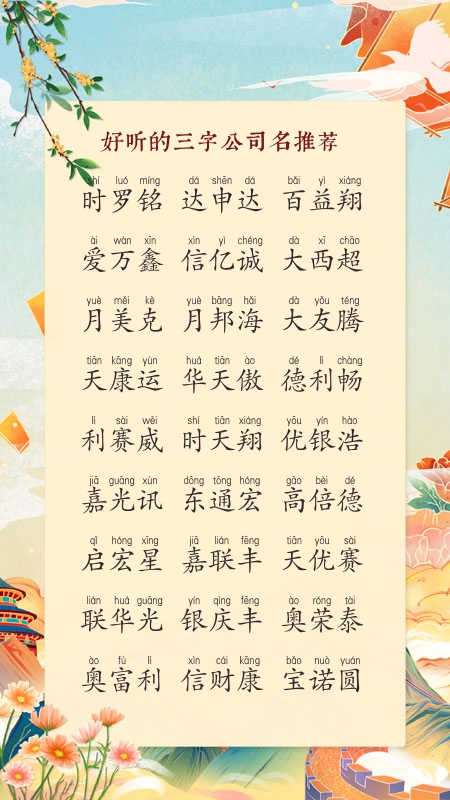 好听的三字公司名推荐
shí luó míng dá shēn dá bǎi yì xiáng
时罗铭 达申达 百益翔
ài wàn xīn xìn yì chéng dà xī chāo
爱万鑫 信亿诚 大西超
yuè měi kè yuè bāng hǎi dà yǒu téng
月美克 月邦海 大友腾
tiān kāng yùn huá tiān ào dé lì chàng
天康运 华天傲 德利畅
lì sài wēi shí tiān xiáng yōu yín hào
利赛威 时天翔 优银浩
jiā guāng xùn dōng tōng hóng gāo bèi dé
嘉光讯 东通宏 高倍德
qǐ hóng xīng jiā lián fēng tiān yōu sài
启宏星 嘉联丰 天优赛
lián huá guāng yín qìng fēng ào róng tài
联华光 银庆丰 奥荣泰
ào fù lì xìn cái kāng bǎo nuò yuán
奥富利 信财康 宝诺圆